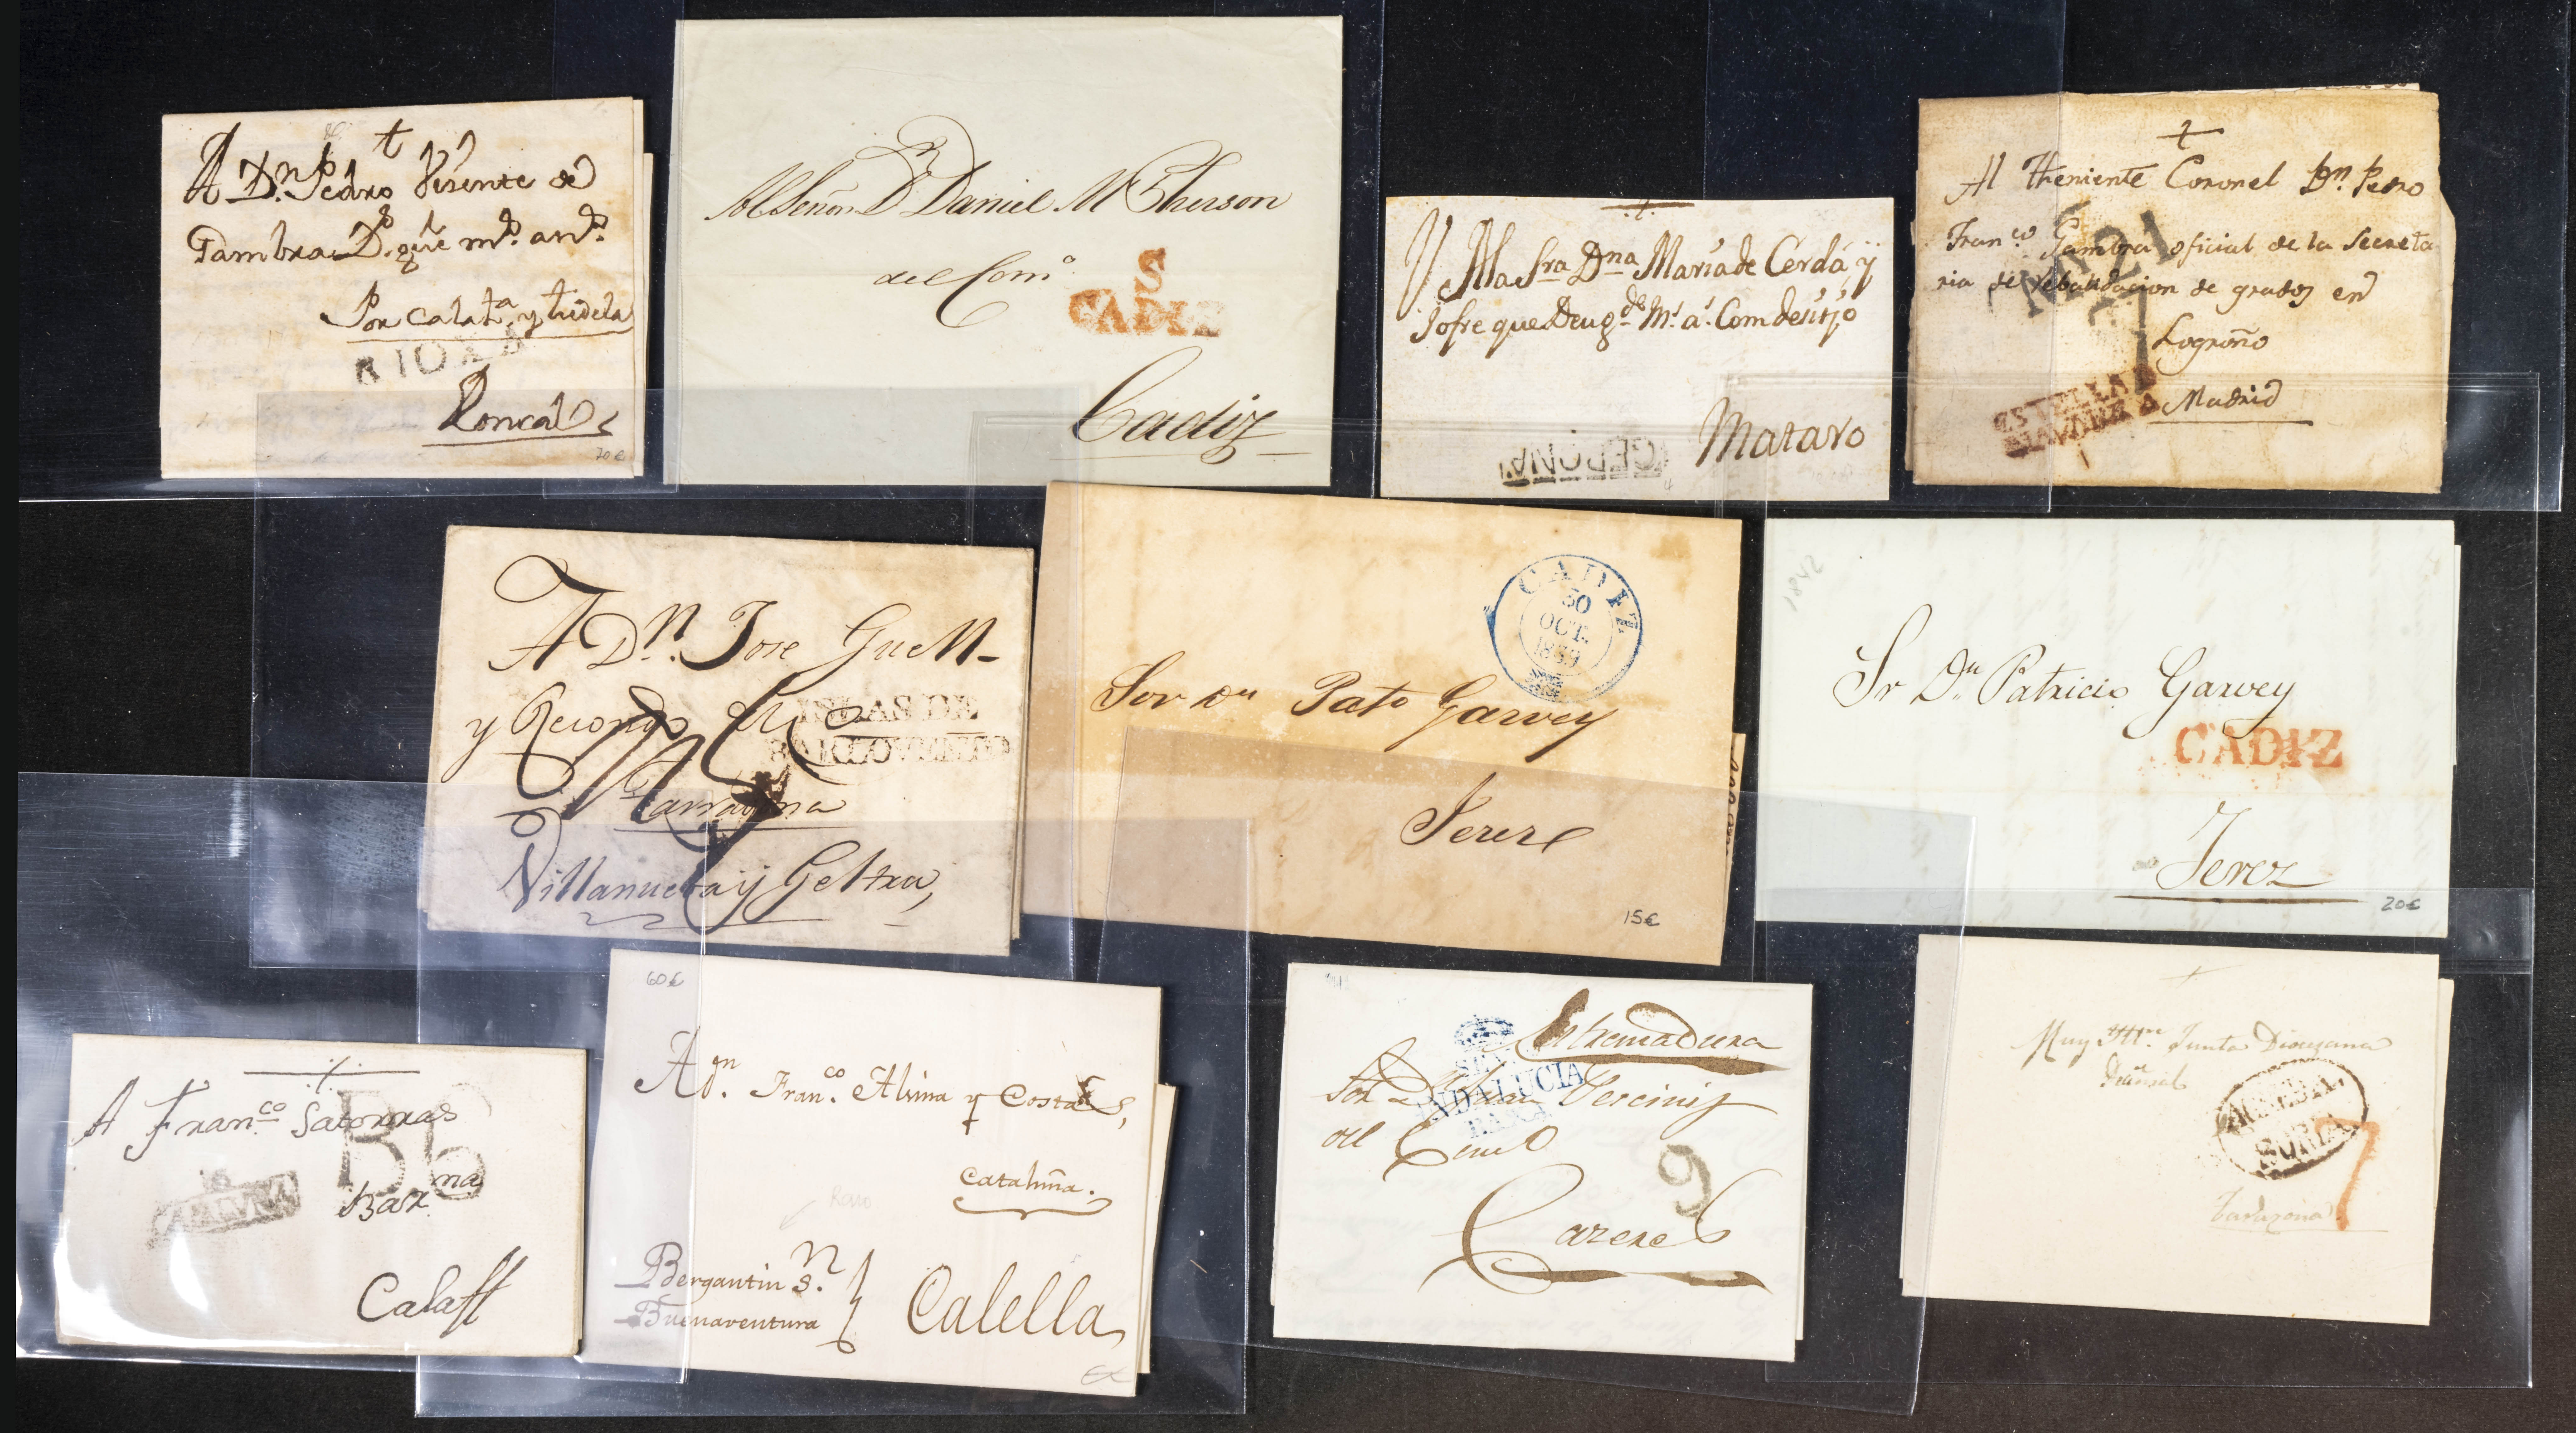 A Dn. Pedro Visente de
Gambra D. que mo. ans.
Por calata. y tudela
RIOXA
Roncal
70€
Al Señor Dn. Daniel McPherson
del Como.
S
CADIZ
Cadiz
A la Sra Dna Maria de Cerdá, y
Jofre que Deu gde. Ms. as. Com desitjo
GERONA
Mataro
Al Theniente Coronel Dn. Pedro
Franco. Gambra oficial de la Secreta
ria de
de grados en
Logroño
ESTELLA
NAVARRA
Madrid
A Dn. Jose Guell
y
ISLAS DE
BARLOVENTO
Tarragona
Villanueba y Geltru,
CADIZ
30
OCT.
1849
Sor Dn Pato Garvey
Jerez
15€
1842
Sr Dn. Patricio Garvey
CADIZ
Jerez
20€
A Franco. Satorras
Bb
CATALUÑA
Barna
Calaff
60€
A Dn. Franco. Alsina y Costas,
Cataluña.
Raro
Bergantin Sn.
Buenaventura
Calella
Extremadura
ANDALUCIA
BAXA
del Com
9
Cazeres
Muy Iltre. Junta Diocesana
SORIA
7
Tarazona